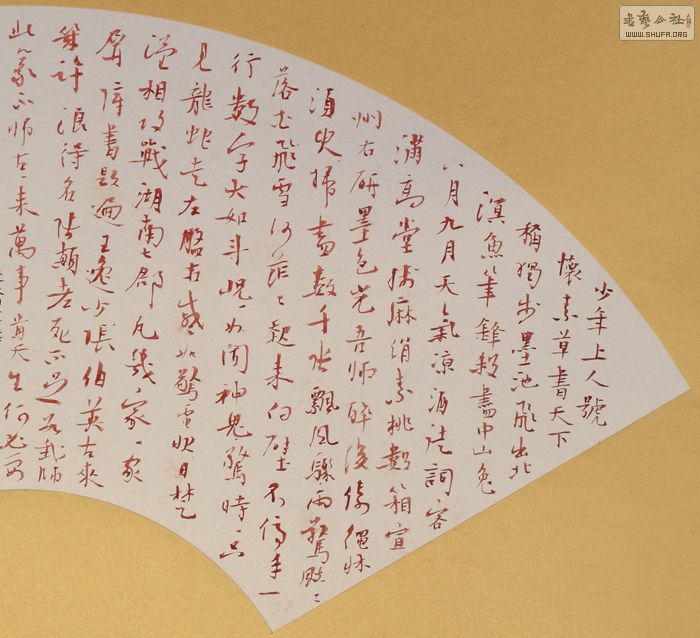 少年上人號
懷素草書天下
稱獨步墨池飛出北
溟魚筆鋒殺盡中山兔
八月九月天氣涼酒徒詞客
滿高堂牋麻絹素排數箱宣
州石硯墨色光吾師醉後倚繩床
須臾掃盡數千張飄風驟雨驚颯々
落花飛雪何茫々起來向壁不停手一
行數字大如斗恍々如聞神鬼驚時々只
見龍蛇走左盤右蹙如驚電狀同楚
漢相攻戰湖南七郡凡幾家々家
屏障書題遍王逸少張伯英古來
幾許浪得名張顛老死不足數我師
此義不師古々來萬事貴天生何必要
書藝公社
WWW.SHUFA.ORG